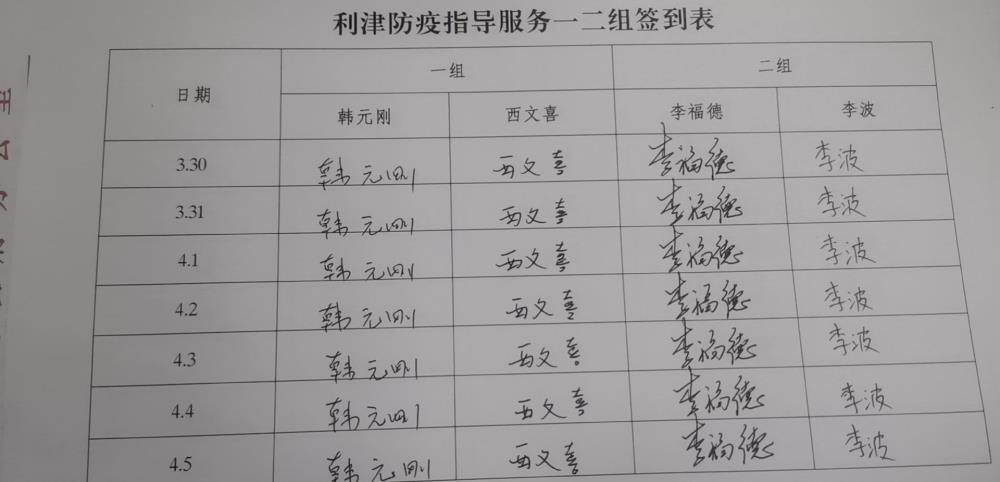 利津防疫指导服务一二组签到表
日期 一组 二组
韩元刚 西文喜 李福德 李波
3.30 韩元刚 西文喜 李福德 李波
3.31 韩元刚 西文喜 李福德 李波
4.1 韩元刚 西文喜 李福德 李波
4.2 韩元刚 西文喜 李福德 李波
4.3 韩元刚 西文喜 李福德 李波
4.4 韩元刚 西文喜 李福德 李波
4.5 韩元刚 西文喜 李福德 李波